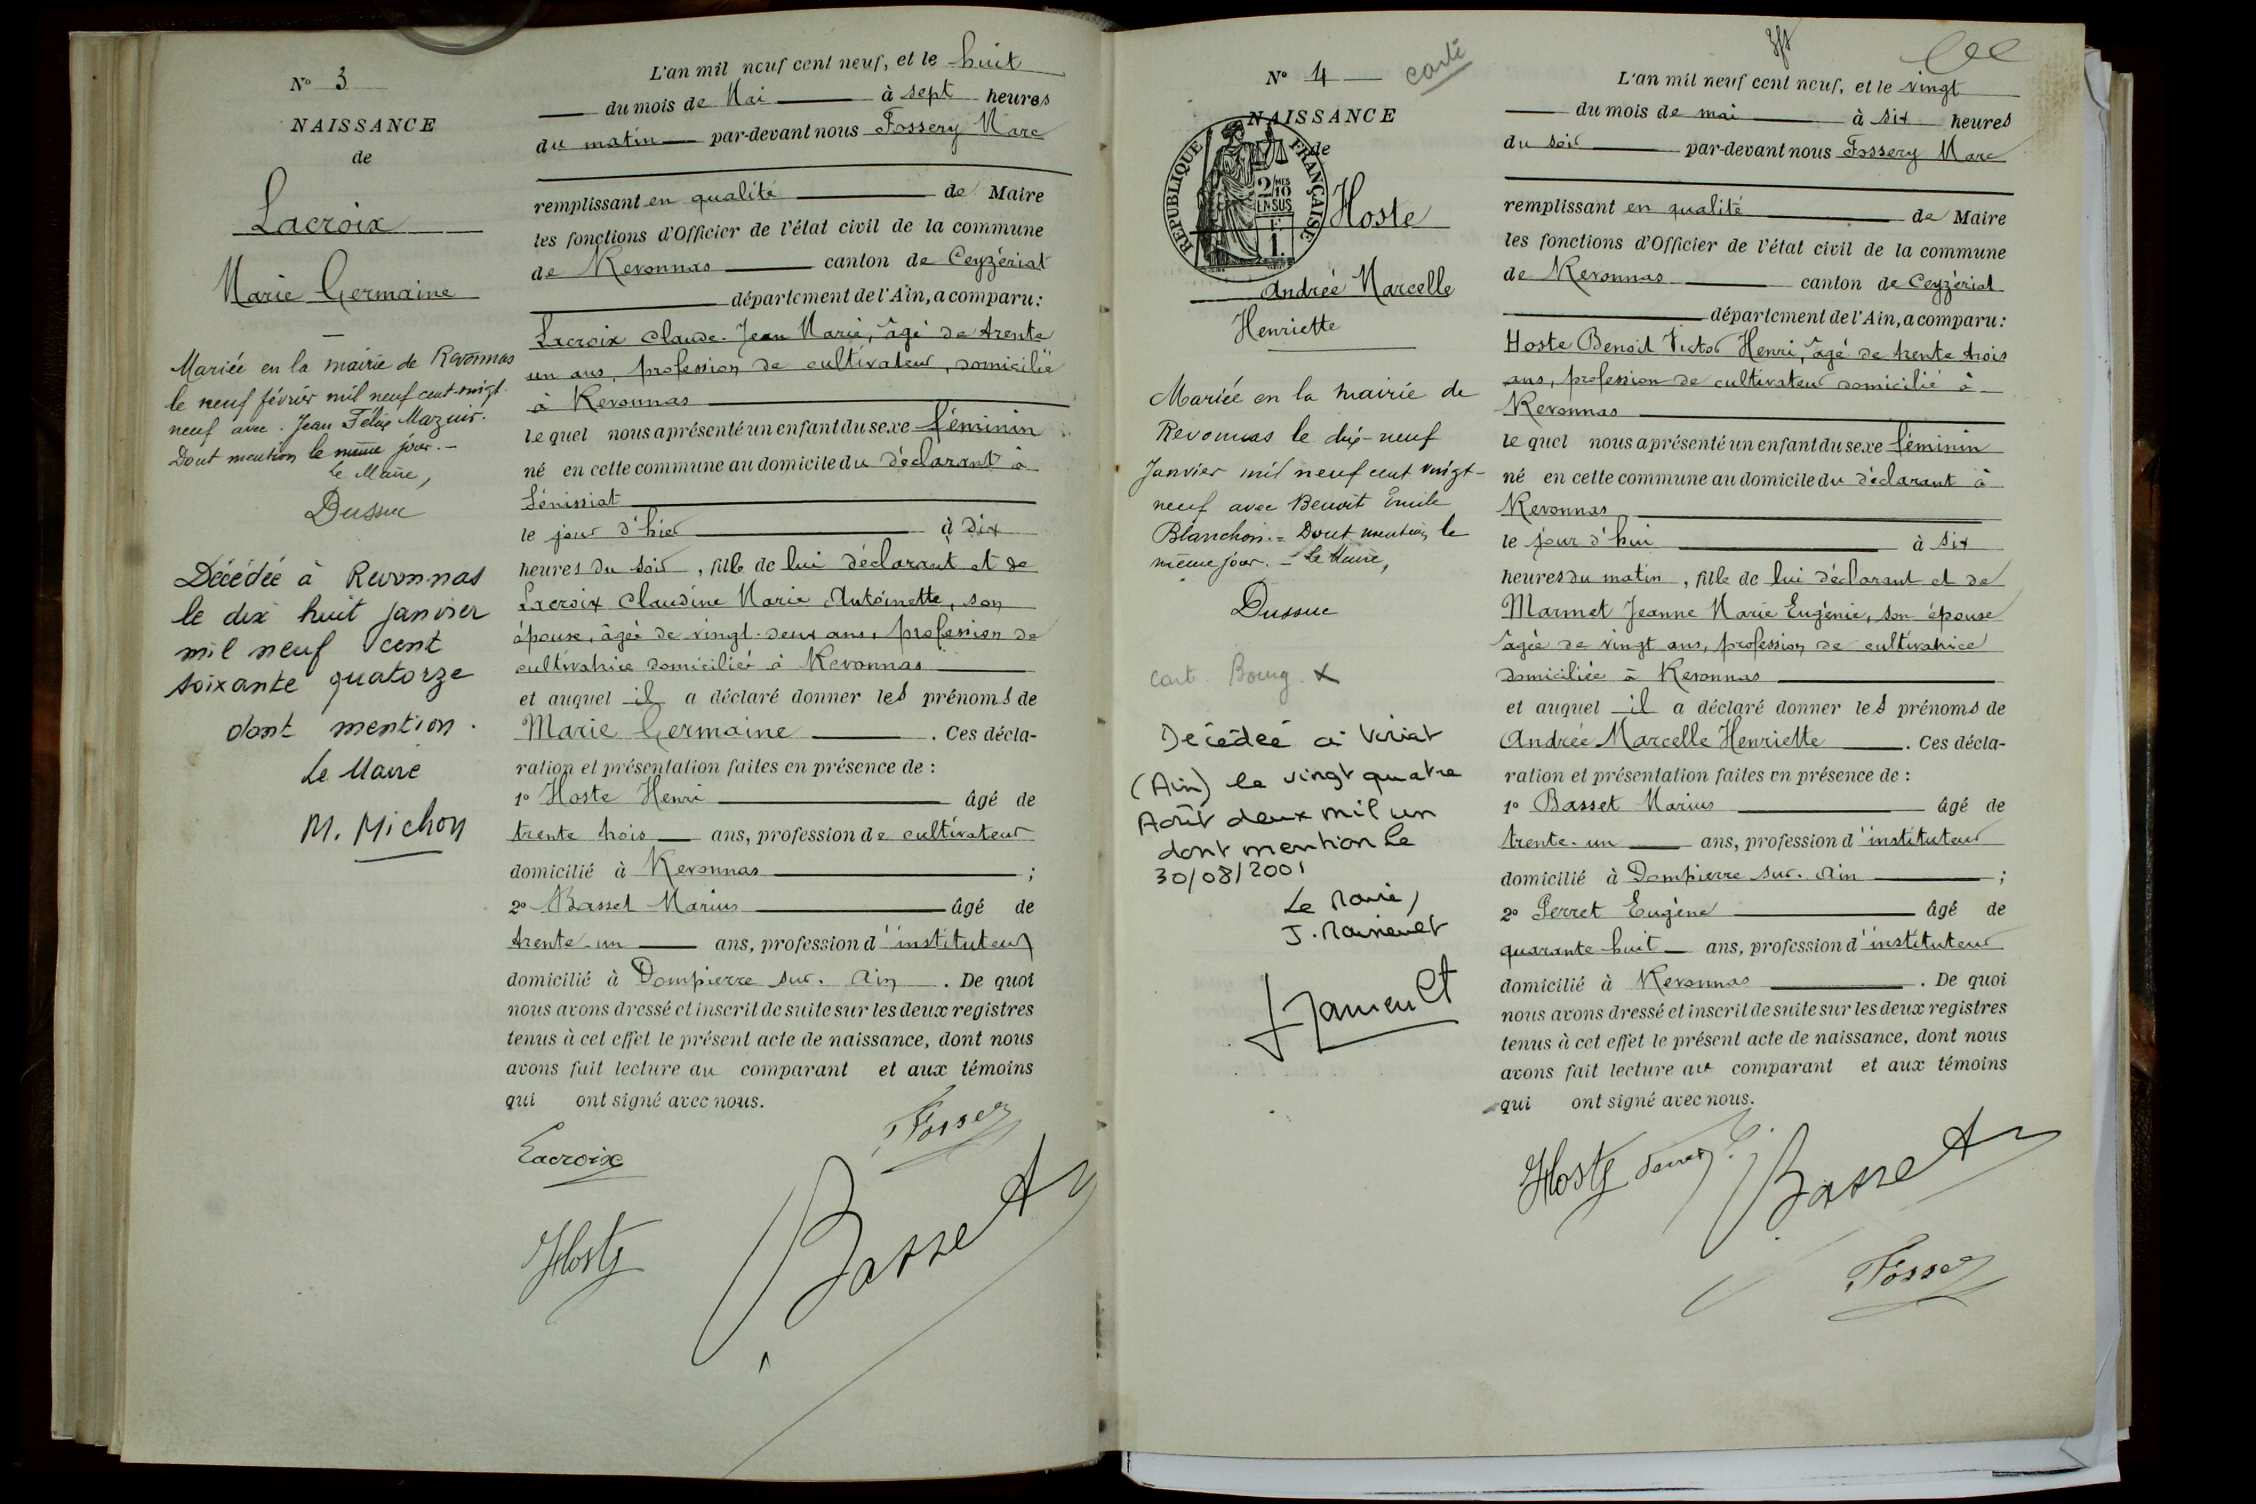 N° 3
NAISSANCE
de
Lacroix
Marie Germaine
Mariée en la mairie de Revonnas
le neuf février mil neuf cent-vingt-
neuf avec. Jean Félix Mazuir.
Dont mention le même jour. -
Le Maire,
Dussuc
Décédée à Revonnas
le dix huit janvier
mil neuf cent
soixante quatorze
dont mention.
Le Maire
M. Michon
L'an mil neuf cent neuf, et le huit
du mois de Mai à sept heures
du matin par-devant nous Fossery Marc
remplissant en qualité de Maire
les fonctions d'Officier de l'état civil de la commune
de Revonnas canton de Ceyzériat
département de l'Ain, a comparu:
Lacroix Claude Jean Marie, âgé de trente
un ans, profession de cultivateur, domicilié
à Revonnas
lequel nous a présenté un enfant du sexe féminin
né en cette commune au domicile du déclarant à
Sénissiat
le jour d'hier à dix
heures du soir, fille de lui déclarant et de
Lacroix Claudine Marie Antoinette, son
épouse, âgée de vingt-deux ans, profession de
cultivatrice domiciliée à Revonnas
et auquel il a déclaré donner les prénoms de
Marie Germaine. Ces décla-
ration et présentation faites en présence de :
1° Hoste Henri âgé de
trente trois ans, profession de cultivateur
domicilié à Revonnas ;
2° Basset Marius âgé de
trente-un ans, profession d'instituteur
domicilié à Dompierre sur. Ain. De quoi
nous avons dressé et inscrit de suite sur les deux registres
tenus à cet effet le présent acte de naissance, dont nous
avons fait lecture au comparant et aux témoins
qui ont signé avec nous.
Fossery
Lacroix
Hoste
Basset
N° 4
NAISSANCE
de
RÉPUBLIQUE FRANÇAISE
2/MES 10
EN SUS
1F
Hoste
Andrée Marcelle
Henriette
Mariée en la mairie de
Revonnas le dix-neuf
Janvier mil neuf cent vingt-
neuf avec Benoit Emile
Blanchon.= Dont mention le
même jour. - Le Maire,
Dussuc
cart. Bourg. X
Décédée à Viriat
(Ain) le vingt quatre
Août deux mil un
dont mention le
30/08/2001
Le Maire,
L'an mil neuf cent neuf, et le vingt
du mois de mai à six heures
du soir par-devant nous Fossery Marc
remplissant en qualité de Maire
les fonctions d'Officier de l'état civil de la commune
de Revonnas canton de Ceyzériat
département de l'Ain, a comparu:
Hoste Benoit Victor Henri, âgé de trente trois
ans, profession de cultivateur domicilié à
Revonnas
lequel nous a présenté un enfant du sexe féminin
né en cette commune au domicile du déclarant à
Revonnas
le jour d'hui à six
heures du matin, fille de lui déclarant et de
Marmet Jeanne Marie Eugénie, son épouse
âgée de vingt ans, profession de cultivatrice
domiciliée à Revonnas
et auquel il a déclaré donner les prénoms de
Andrée Marcelle Henriette. Ces décla-
ration et présentation faites en présence de :
1° Basset Marius âgé de
trente-un ans, profession d'instituteur
domicilié à Dompierre sur. Ain ;
2° Perret Eugène âgé de
quarante huit ans, profession d'instituteur
domicilié à Revonnas. De quoi
nous avons dressé et inscrit de suite sur les deux registres
tenus à cet effet le présent acte de naissance, dont nous
avons fait lecture au comparant et aux témoins
qui ont signé avec nous.
Hoste Perret Basset
Fossery